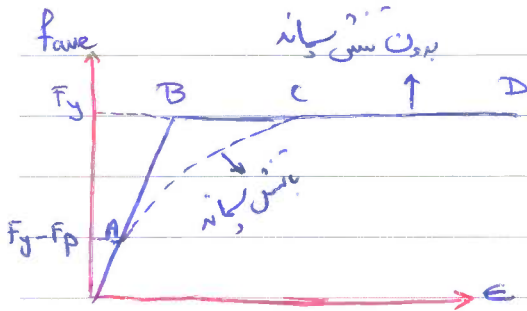 fave
بدون تنش پسماند
Fy
B
C
D
با تنش پسماند
Fy-Fp
A
ϵ